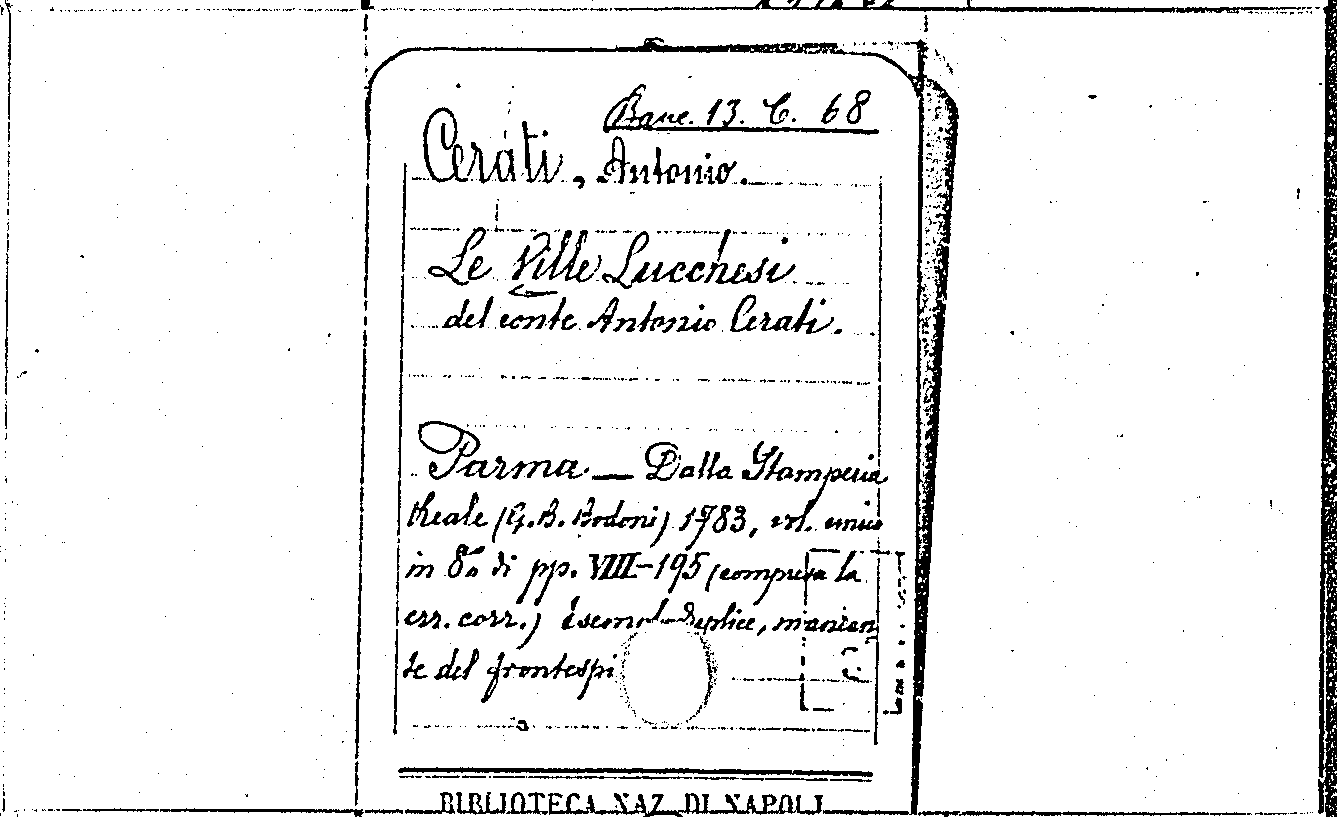 Banc. 13. C. 68
Cerati, Antonio.
Le Ville Lucchesi
del conte Antonio Cerati.
Parma — Dalla Stamperia
Reale (G. B. Bodoni) 1783, vol. unico
in 8º di pp. VIII-195 (compresa la
err. corr.) duplice, mancan
te del frontespi
BIBLIOTECA NAZ. DI NAPOLI